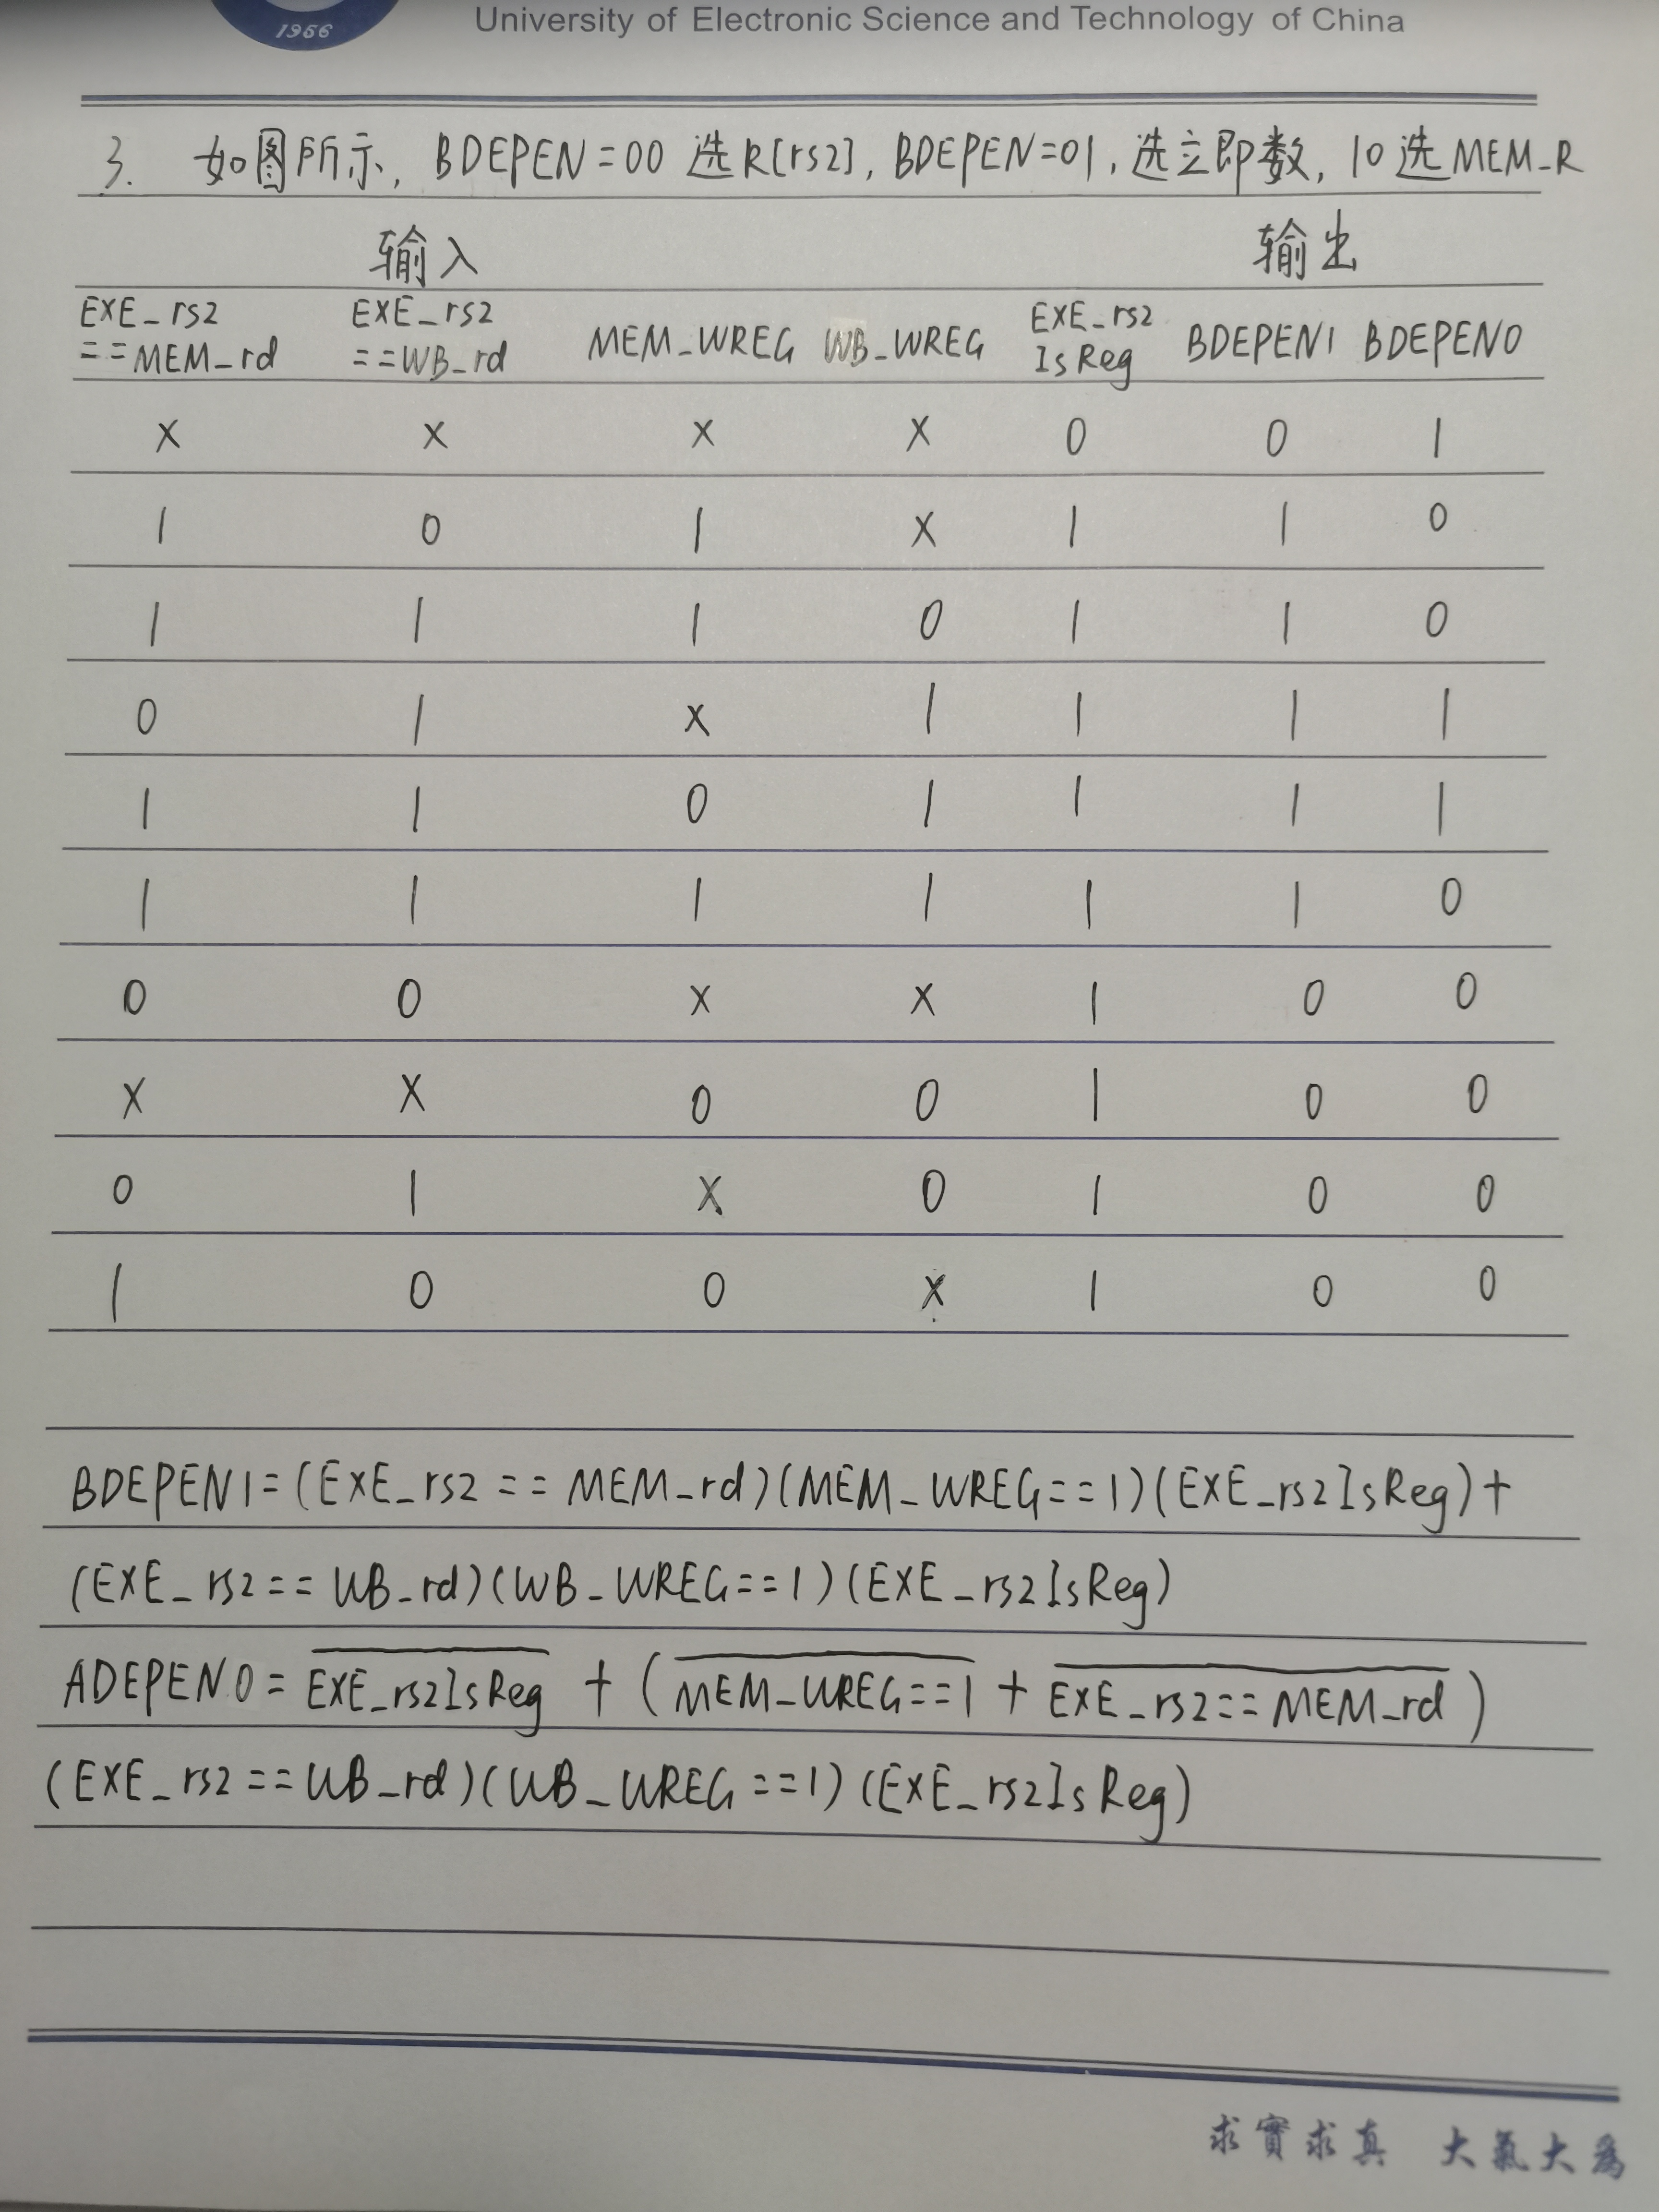 1956
University of Electronic Science and Technology of China
3. 如图所示, BDEPEN=00 选R[rs2], BDEPEN=01, 选立即数, 10选MEM_R
输入 输出
EXE_rs2 ==MEM_rd EXE_rs2 ==WB_rd MEM_WREG WB_WREG EXE_rs2 IsReg BDEPEN1 BDEPEN0
X X X X 0 0 1
1 0 1 X 1 1 0
1 1 1 0 1 1 0
0 1 X 1 1 1 1
1 1 0 1 1 1 1
1 1 1 1 1 1 0
0 0 X X 1 0 0
X X 0 0 1 0 0
0 1 X 0 1 0 0
1 0 0 X 1 0 0
BDEPEN1=(EXE_rs2 == MEM_rd)(MEM_WREG==1)(EXE_rs2IsReg)+
(EXE_rs2== WB_rd)(WB_WREG==1)(EXE_rs2IsReg)
ADEPEN0= \overline{EXE_rs2IsReg} + (\overline{MEM_WREG==1} + \overline{EXE_rs2==MEM_rd})
(EXE_rs2==WB_rd)(WB_WREG==1)(EXE_rs2IsReg)
求實求真 大氣大為